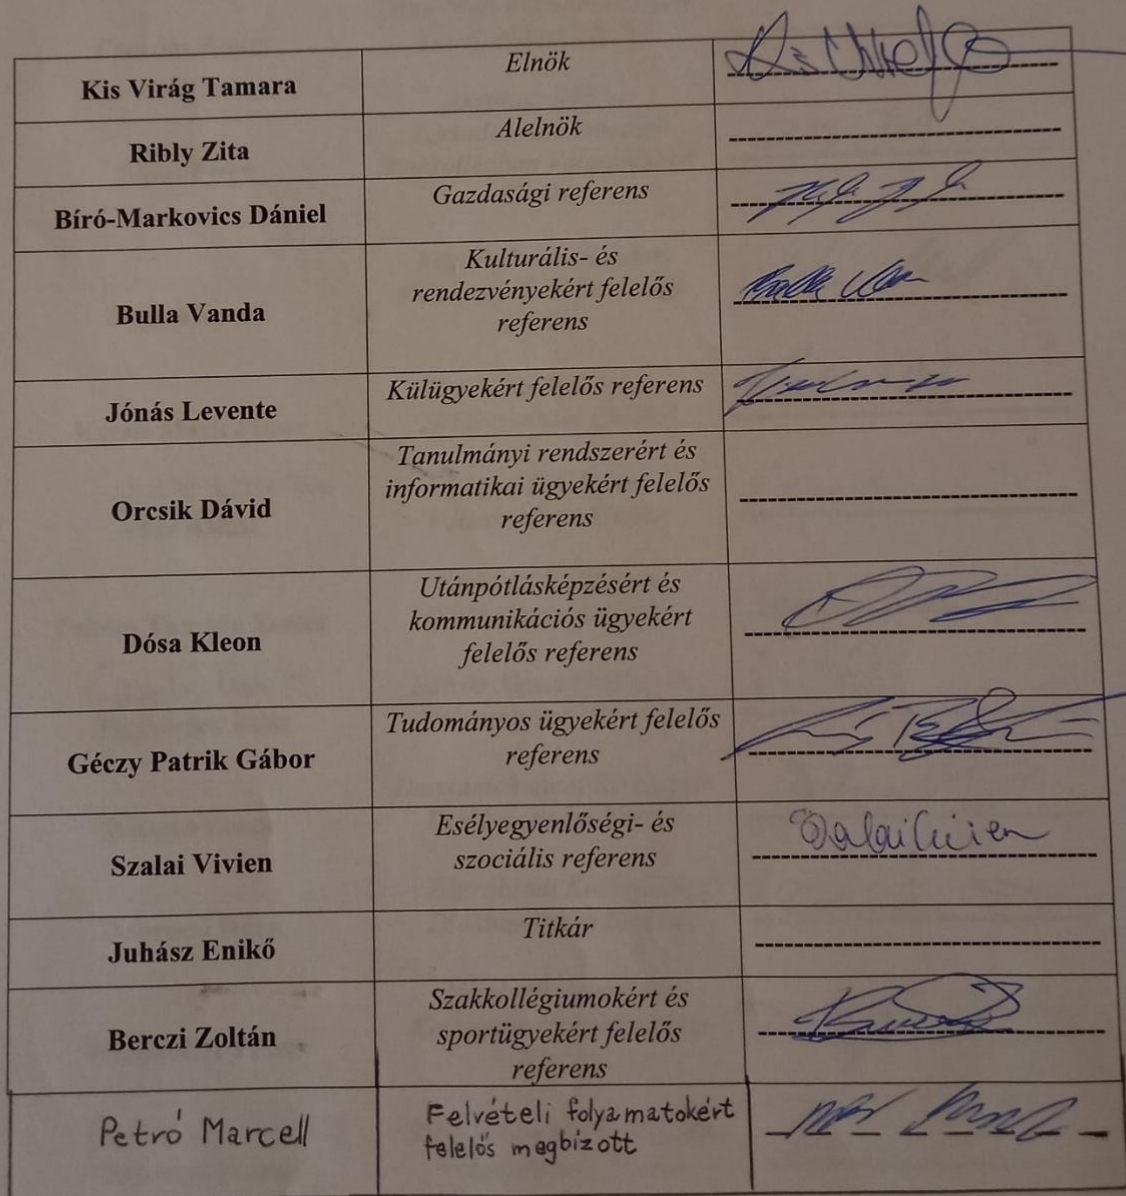 Kis Virág Tamara
Elnök
Ribly Zita
Alelnök
Bíró-Markovics Dániel
Gazdasági referens
Bulla Vanda
Kulturális- és
rendezvényekért felelős
referens
Bulla
Jónás Levente
Külügyekért felelős referens
Orcsik Dávid
Tanulmányi rendszerért és
informatikai ügyekért felelős
referens
Dósa Kleon
Utánpótlásképzésért és
kommunikációs ügyekért
felelős referens
Géczy Patrik Gábor
Tudományos ügyekért felelős
referens
Szalai Vivien
Esélyegyenlőségi- és
szociális referens
Szalai Vivien
Juhász Enikő
Titkár
Berczi Zoltán
Szakkollégiumokért és
sportügyekért felelős
referens
Petró Marcell
Felvételi folyamatokért
felelős megbízott